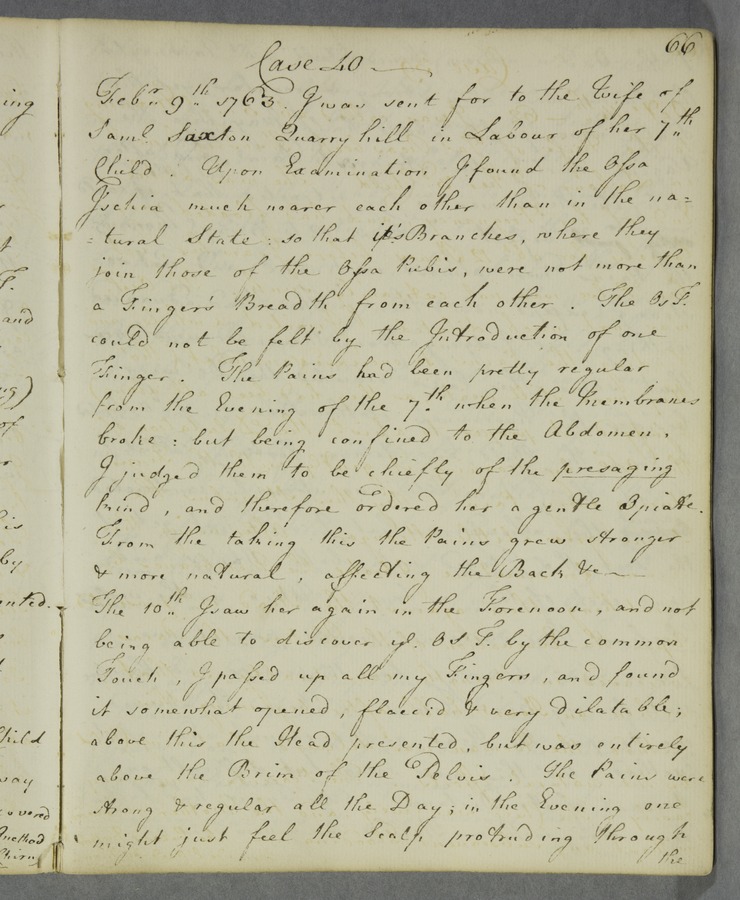 66
Case 40
Febr. 9th 1763. I was sent for to the Wife of
Saml. Saxton Quarry hill in Labour of her 7th
Child. Upon Examination I found the Ossa
Ischia much nearer each other than in the na=
=tural State: so that it's Branches, where they
join those of the Ossa Pubis, were not more than
a Finger's Breadth from each other. The Os T.
could not be felt by the Introduction of one
Finger. The Pains had been pretty regular
from the Evening of the 7th. when the Membranes
broke: but being confined to the Abdomen,
I judged them to be chiefly of the presaging
kind, and therefore ordered her a gentle Opiate.
From the taking this the Pains grew stronger
& more natural, affecting the Back &c
The 10th I saw her again in the Forenoon, and not
being able to discover ye. Os T. by the common
Touch, I passed up all my Fingers, and found
it somewhat opened, flaccid & very dilatable;
above this the Head presented, but was entirely
above the Brim of the Pelvis. The Pains were
strong & regular all the Day; in the Evening one
might just feel the Scalp protruding through
the